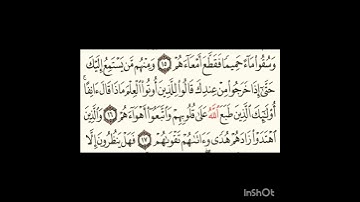 وَسُقُوا۟ مَآءً حَمِيمًا فَقَطَّعَ أَمْعَآءَهُمْ ١٥ وَمِنْهُم مَّن يَسْتَمِعُ إِلَيْكَ
حَتَّىٰٓ إِذَا خَرَجُوا۟ مِنْ عِندِكَ قَالُوا۟ لِلَّذِينَ أُوتُوا۟ ٱلْعِلْمَ مَاذَا قَالَ ءَانِفًا ۚ
أُو۟لَٰٓئِكَ ٱلَّذِينَ طَبَعَ ٱللَّهُ عَلَىٰ قُلُوبِهِمْ وَٱتَّبَعُوٓا۟ أَهْوَآءَهُمْ ١٦ وَٱلَّذِينَ
ٱهْتَدَوْا۟ زَادَهُمْ هُدًى وَءَاتَىٰهُمْ تَقْوَىٰهُمْ ١٧ فَهَلْ يَنظُرُونَ إِلَّا
InShOt